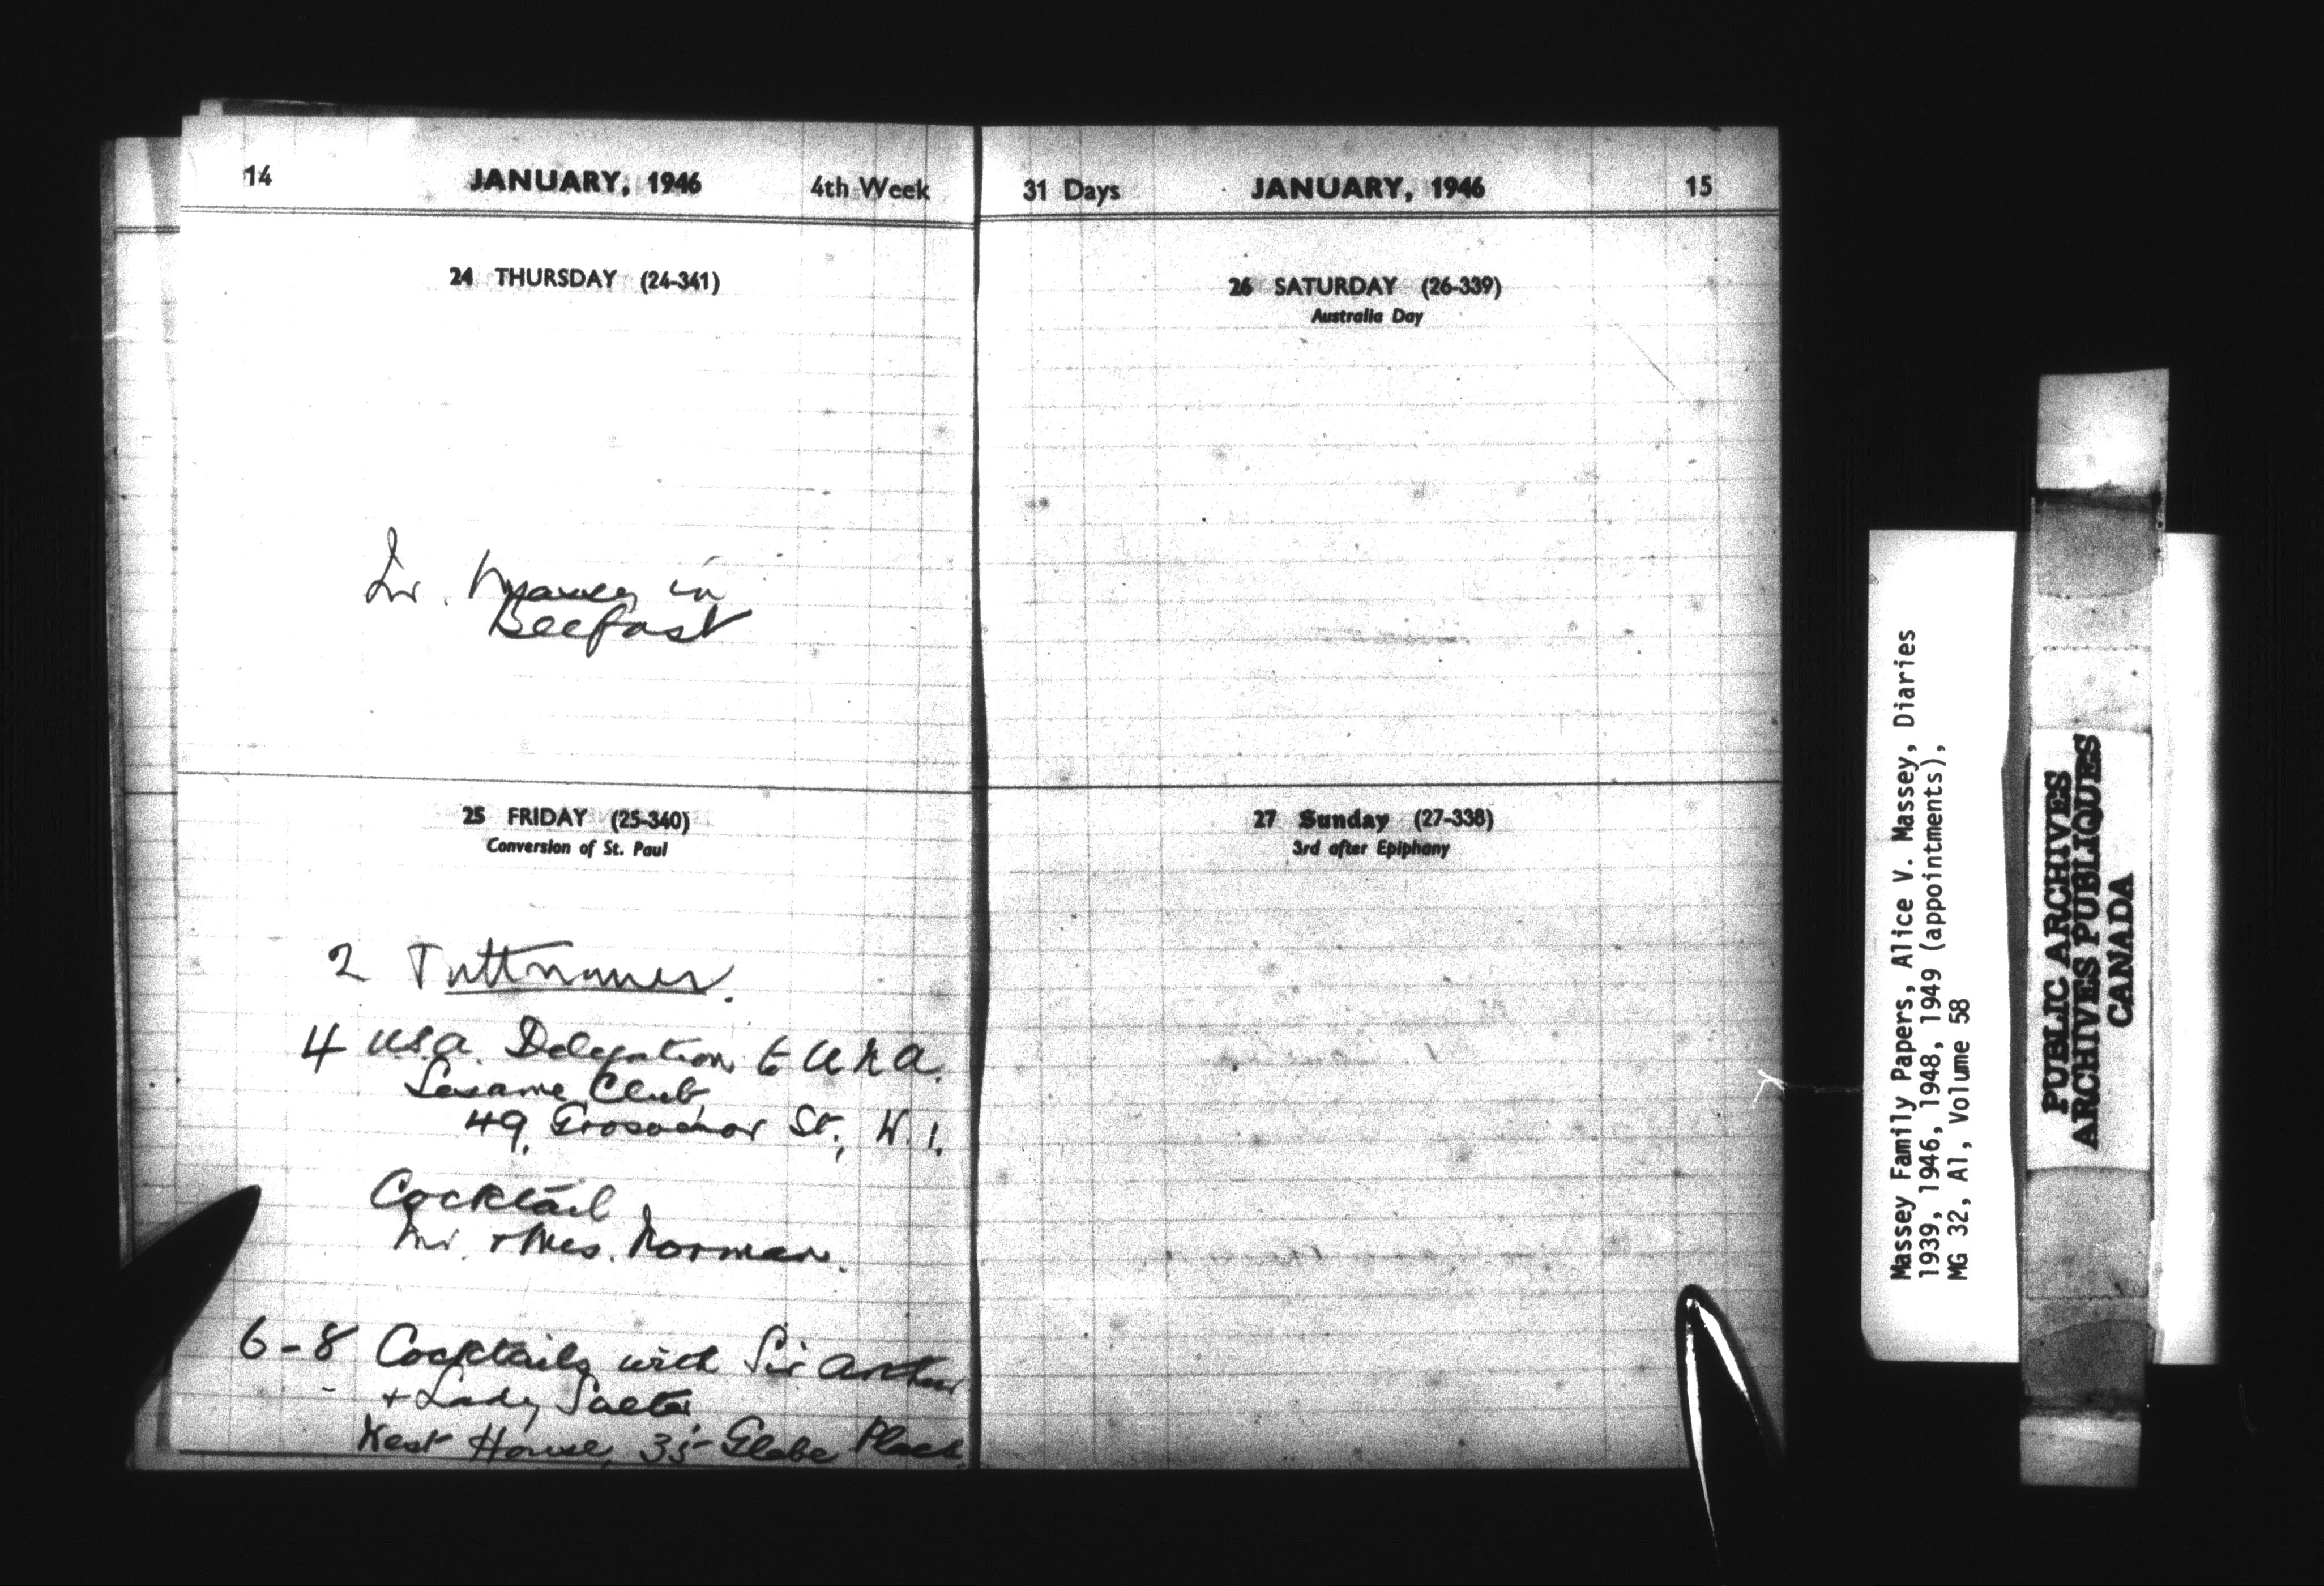 14 JANUARY, 1946 4th Week
24 THURSDAY (24-341)
Mr. Massey in
Belfast
25 FRIDAY (25-340)
Conversion of St. Paul
2
4 U.S.A. Delegation to U N A.
Sesame Club,
49, Grosvenor St., W.1.
Cocktail
Mr. + Mrs. Norman.
6-8 Cocktails with Sir Arthur
+ Lady Salter
West House, 35 Glebe Place
31 Days JANUARY, 1946 15
26 SATURDAY (26-339)
Australia Day
27 Sunday (27-338)
3rd after Epiphany
Massey Family Papers, Alice V. Massey, Diaries
1939, 1946, 1948, 1949 (appointments),
MG 32, A1, Volume 58
PUBLIC ARCHIVES
ARCHIVES PUBLIQUES
CANADA